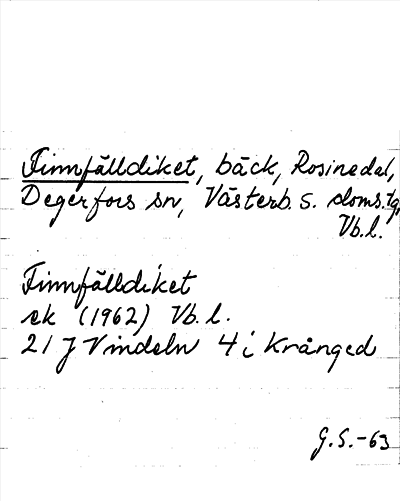 Finnfälldiket, bäck, Rosinedal,
Degerfors sn, Västerb. s. doms.tg,
Vb.l.
Finnfälldiket
ek (1962) Vb.l.
21 J Vindeln 4 i Krånged
G.S.-63